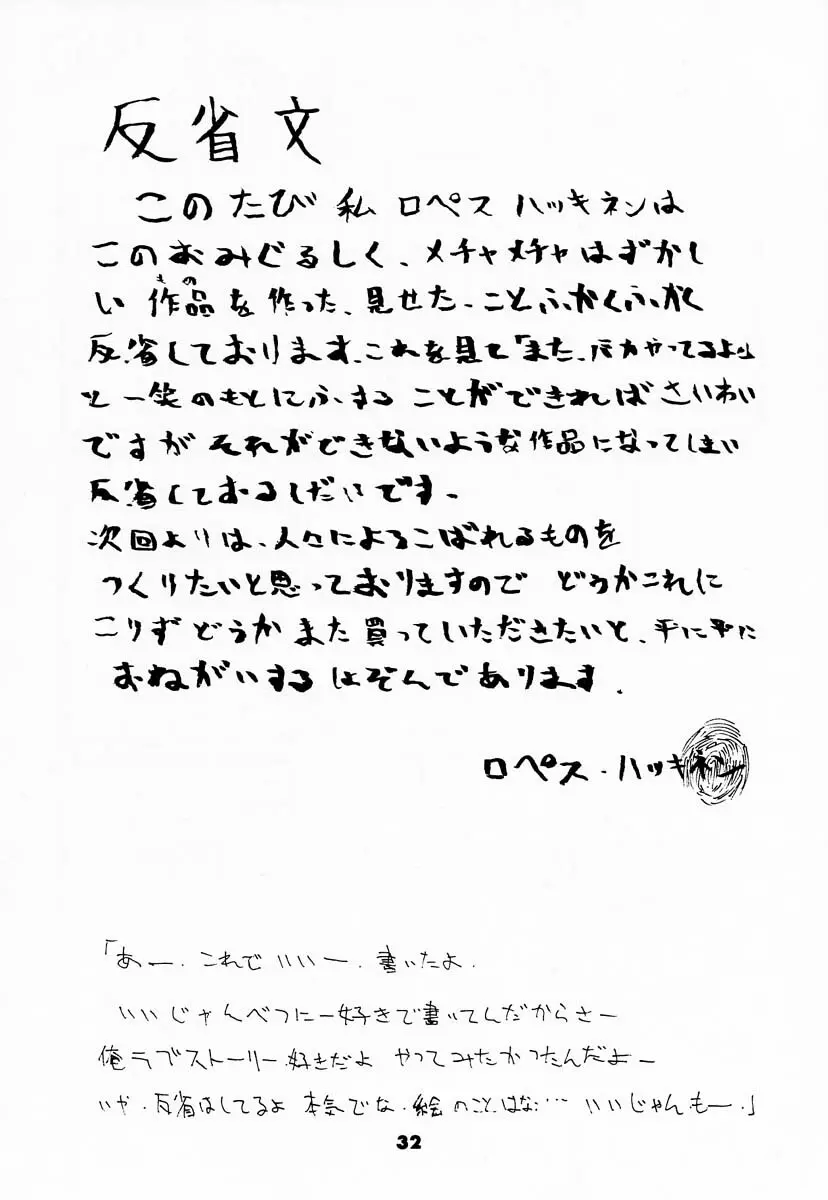 反省文
このたび 私 ロペス ハッキネンは
このおみぐるしく、メチャメチャはずかし
もの
い 作品を作った、見せた、ことふかくふかく
反省しております、これを見て「また、バカやってるよ」
と 一笑のもとにふする ことができればさいわい
ですが それができないような作品になってしまい
反省しておるしだいです。
次回よりは、人々によろこばれるものを
つくりたいと思っておりますので どうかこれに
こりず どうか また 買っていただきたいと、平に平に
おねがいする しょぞんであります。
ロペス・ハッキネン
「あー、これでいいー、書いたよ、
いいじゃんべつにー好きで書いてんだからさー
俺ラブストーリー好きだよ やってみたかったんだよー
いや、反省はしてるよ 本気でな、絵のことはな…… いいじゃんもー。」
32